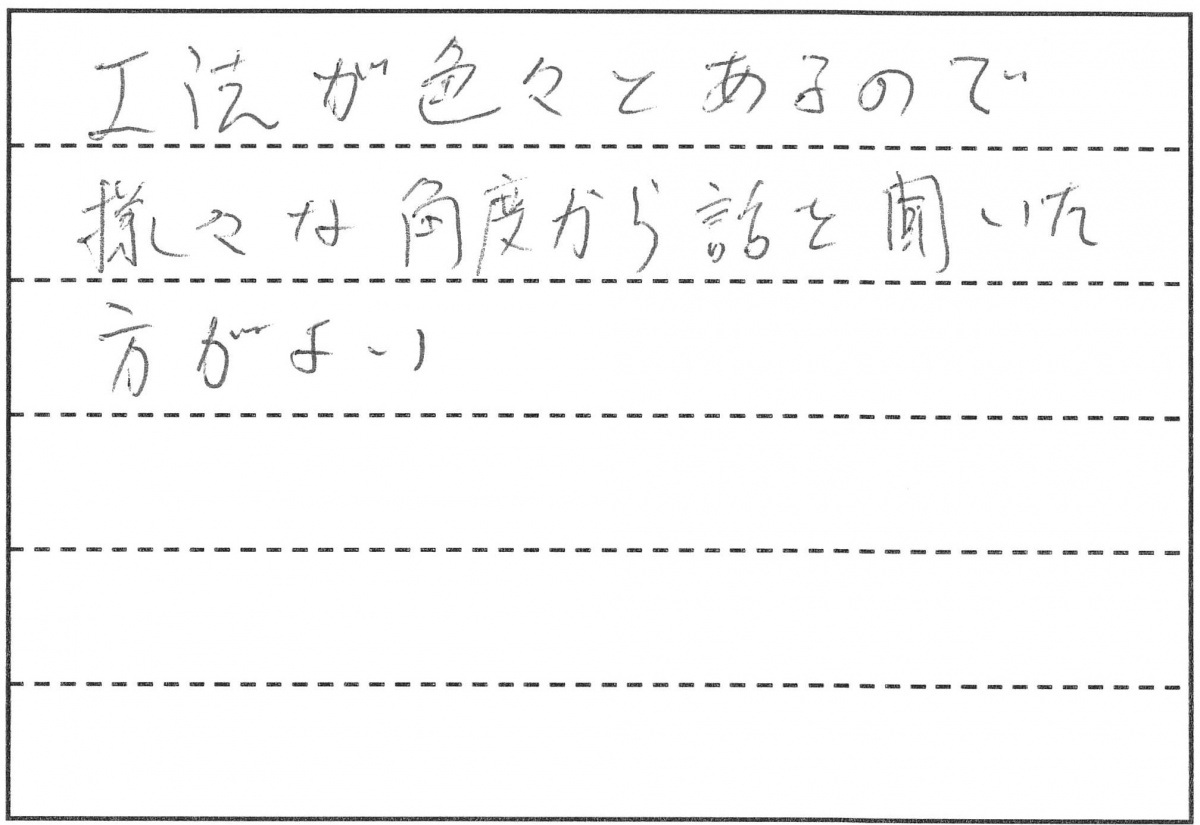 工法が色々とあるので
様々な角度から話を聞いた
方がよい